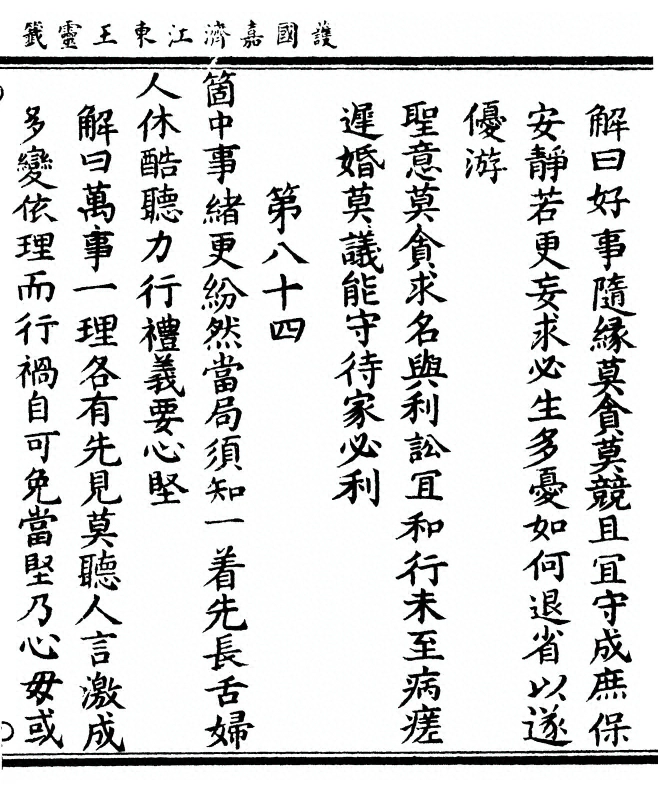 護國嘉濟江東王靈籤
解曰好事隨緣莫貪莫競且宜守成庶保
安靜若更妄求必生多憂如何退省以遂
優游
聖意莫貪求名與利訟宜和行未至病瘥
遲婚莫議能守待家必利
第八十四
箇中事緒更紛然當局須知一着先長舌婦
人休酷聽力行禮義要心堅
解曰萬事一理各有先見莫聽人言激成
多變依理而行禍自可免當堅乃心毋或